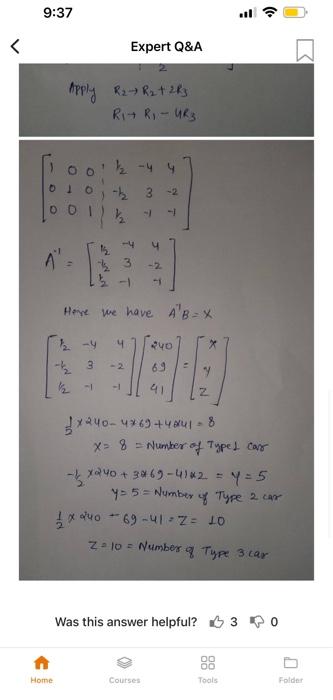 9:37
Expert Q&A
2
Apply R2→ R2 + 2R3
R1→ R1 - 4R3
1 0 0 ½ -4 4
0 1 0 -½ 3 -2
0 0 1 ½ -1 -1
A⁻¹ = ½ -4 4
-½ 3 -2
½ -1 -1
Here we have A⁻¹B = X
½ -4 4 240 x
-½ 3 -2 69 = y
½ -1 -1 41 z
½ x 240 - 4x69 + 4x41 = 8
x = 8 = Number of Type1 car
-½ x 240 + 3x69 - 41x2 = y = 5
y = 5 = Number of Type 2 car
½ x 240 - 69 - 41 = Z = 10
Z = 10 = Number of Type 3 car
Was this answer helpful? 3 0
Home Courses Tools Folder